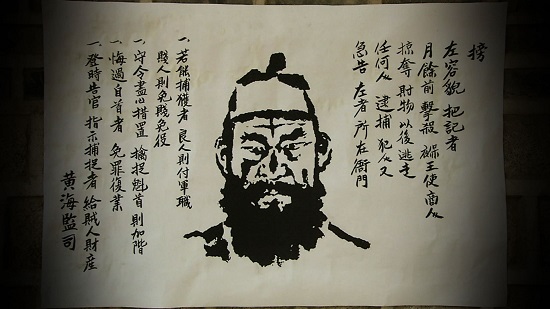 榜
左容貌 把記者
月餘前 擊殺 王使商人
掠奪財物以後逃走
任何人 逮捕 犯人又
急告 左者 所在衙門
一. 若能捕獲者 良人則付軍職
賤人則免賤免役
一. 守令盡心措置 擒捉魁首則加階
一. 悔過自首者 免罪復業
一. 登時告官 指示捕捉者 給賊人財産
黃海監司